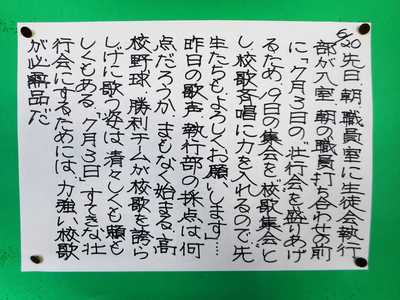 6/20 先日、朝、職員室に生徒会執行
部が入室。朝の職員打ち合わせの前
に「7月3日の、壮行会を盛りあげ
るため、19日の集会を『校歌集会』と
し、校歌斉唱に力を入れるので、先
生たちもよろしくお願いします」…
昨日の歌声、執行部の採点は何
点だろうか。まもなく始まる、高
校野球。勝利チームが校歌を誇ら
しげに歌う姿は、清々しくも頼も
しくもある。「7月3日」すてきな壮
行会にするためには、力強い校歌
が必需品だ